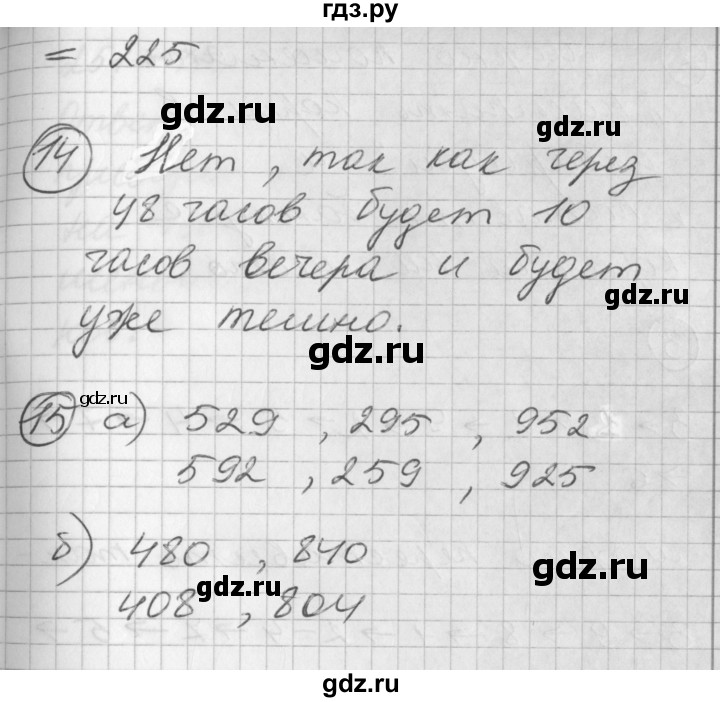 гдз.ру
= 225
gdz.ru
gdz.ru
14 Нет, так как через
48 часов будет 10
часов вечера и будет
gdz.ru
уже темно.
gdz.ru
gdz.ru
15 а) 529, 295, 952
gdz.ru
592, 259, 925
б) 480, 840
gdz.ru
gdz.ru
408, 804
gdz.ru